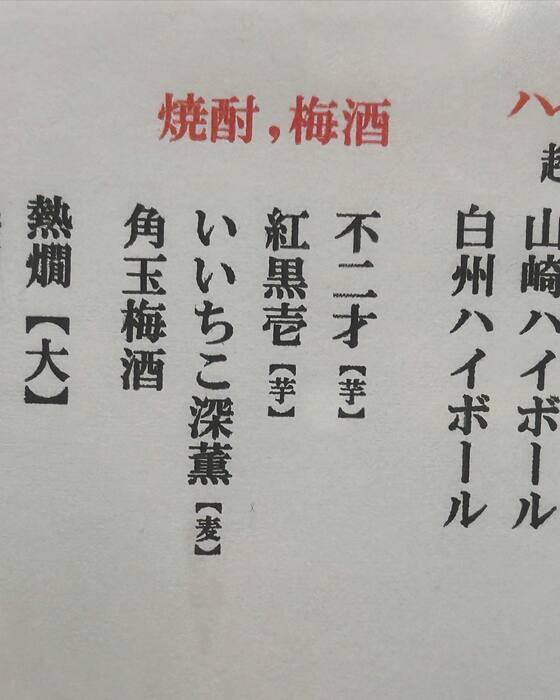 山崎ハイボール
白州ハイボール
焼酎,梅酒
不二才【芋】
紅黒壱【芋】
いいちこ深薫【麦】
角玉梅酒
熱燗【大】